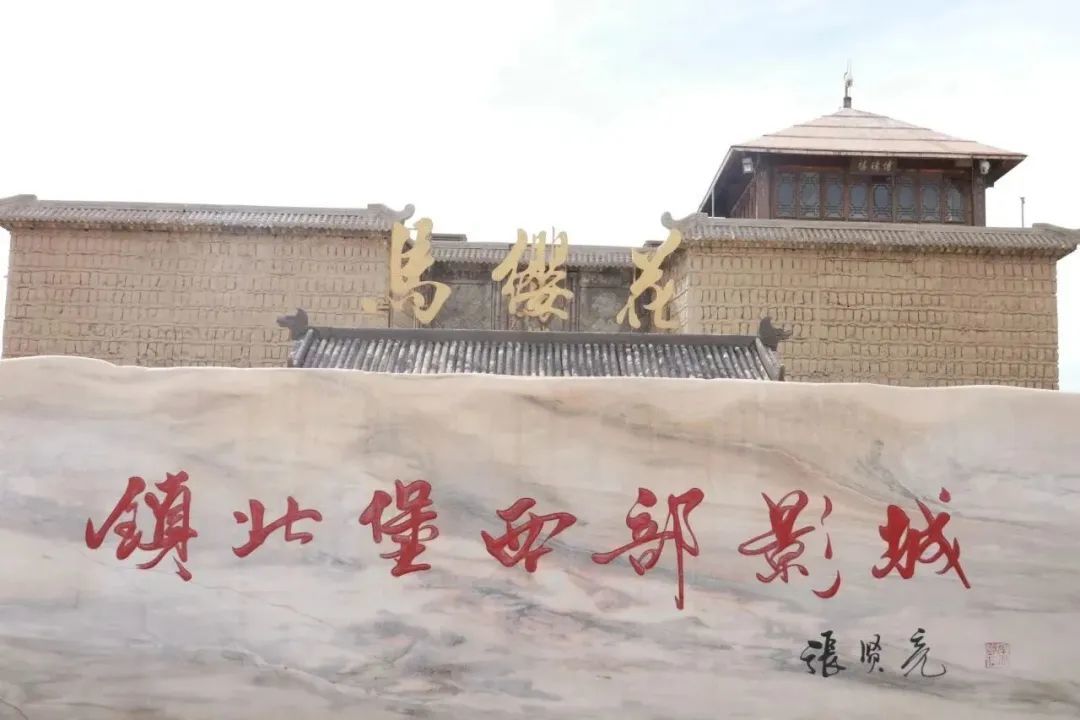 馬纓花
鎮北堡西部影城
張贤亮